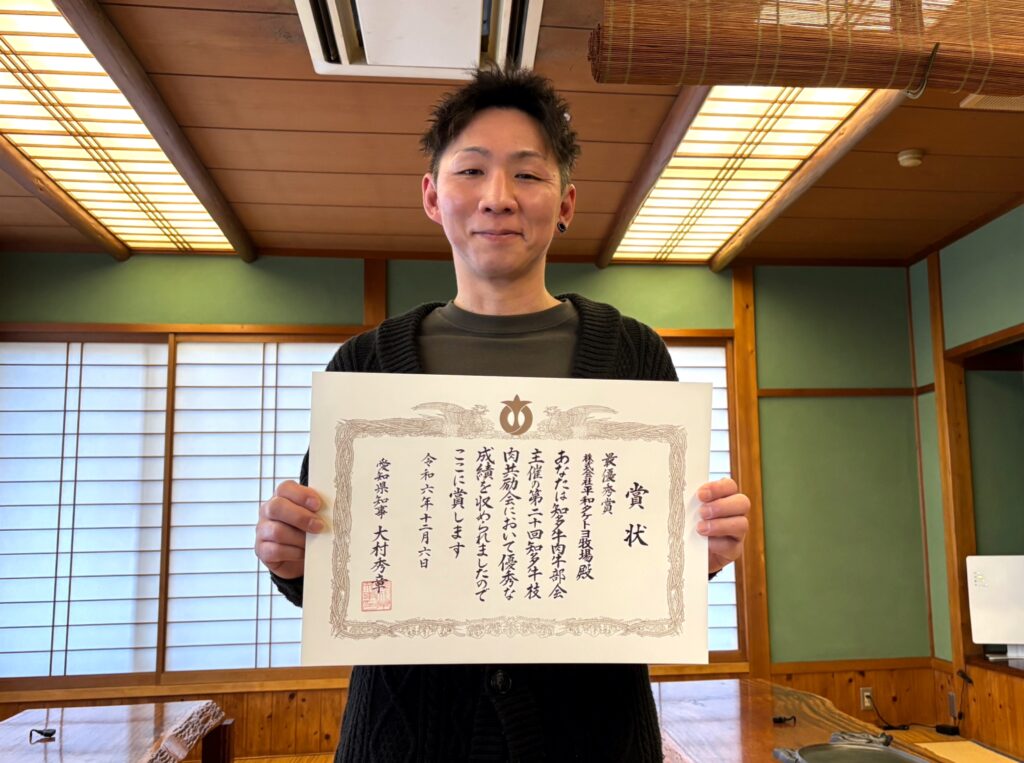 賞状
最優秀賞
株式会社平和タケトヨ牧場殿
あなたは知多牛肉牛部会
主催の第二十回知多牛枝
肉共励会において優秀な
成績を収められましたので
ここに賞します
令和六年十二月六日
愛知県知事 大村秀章